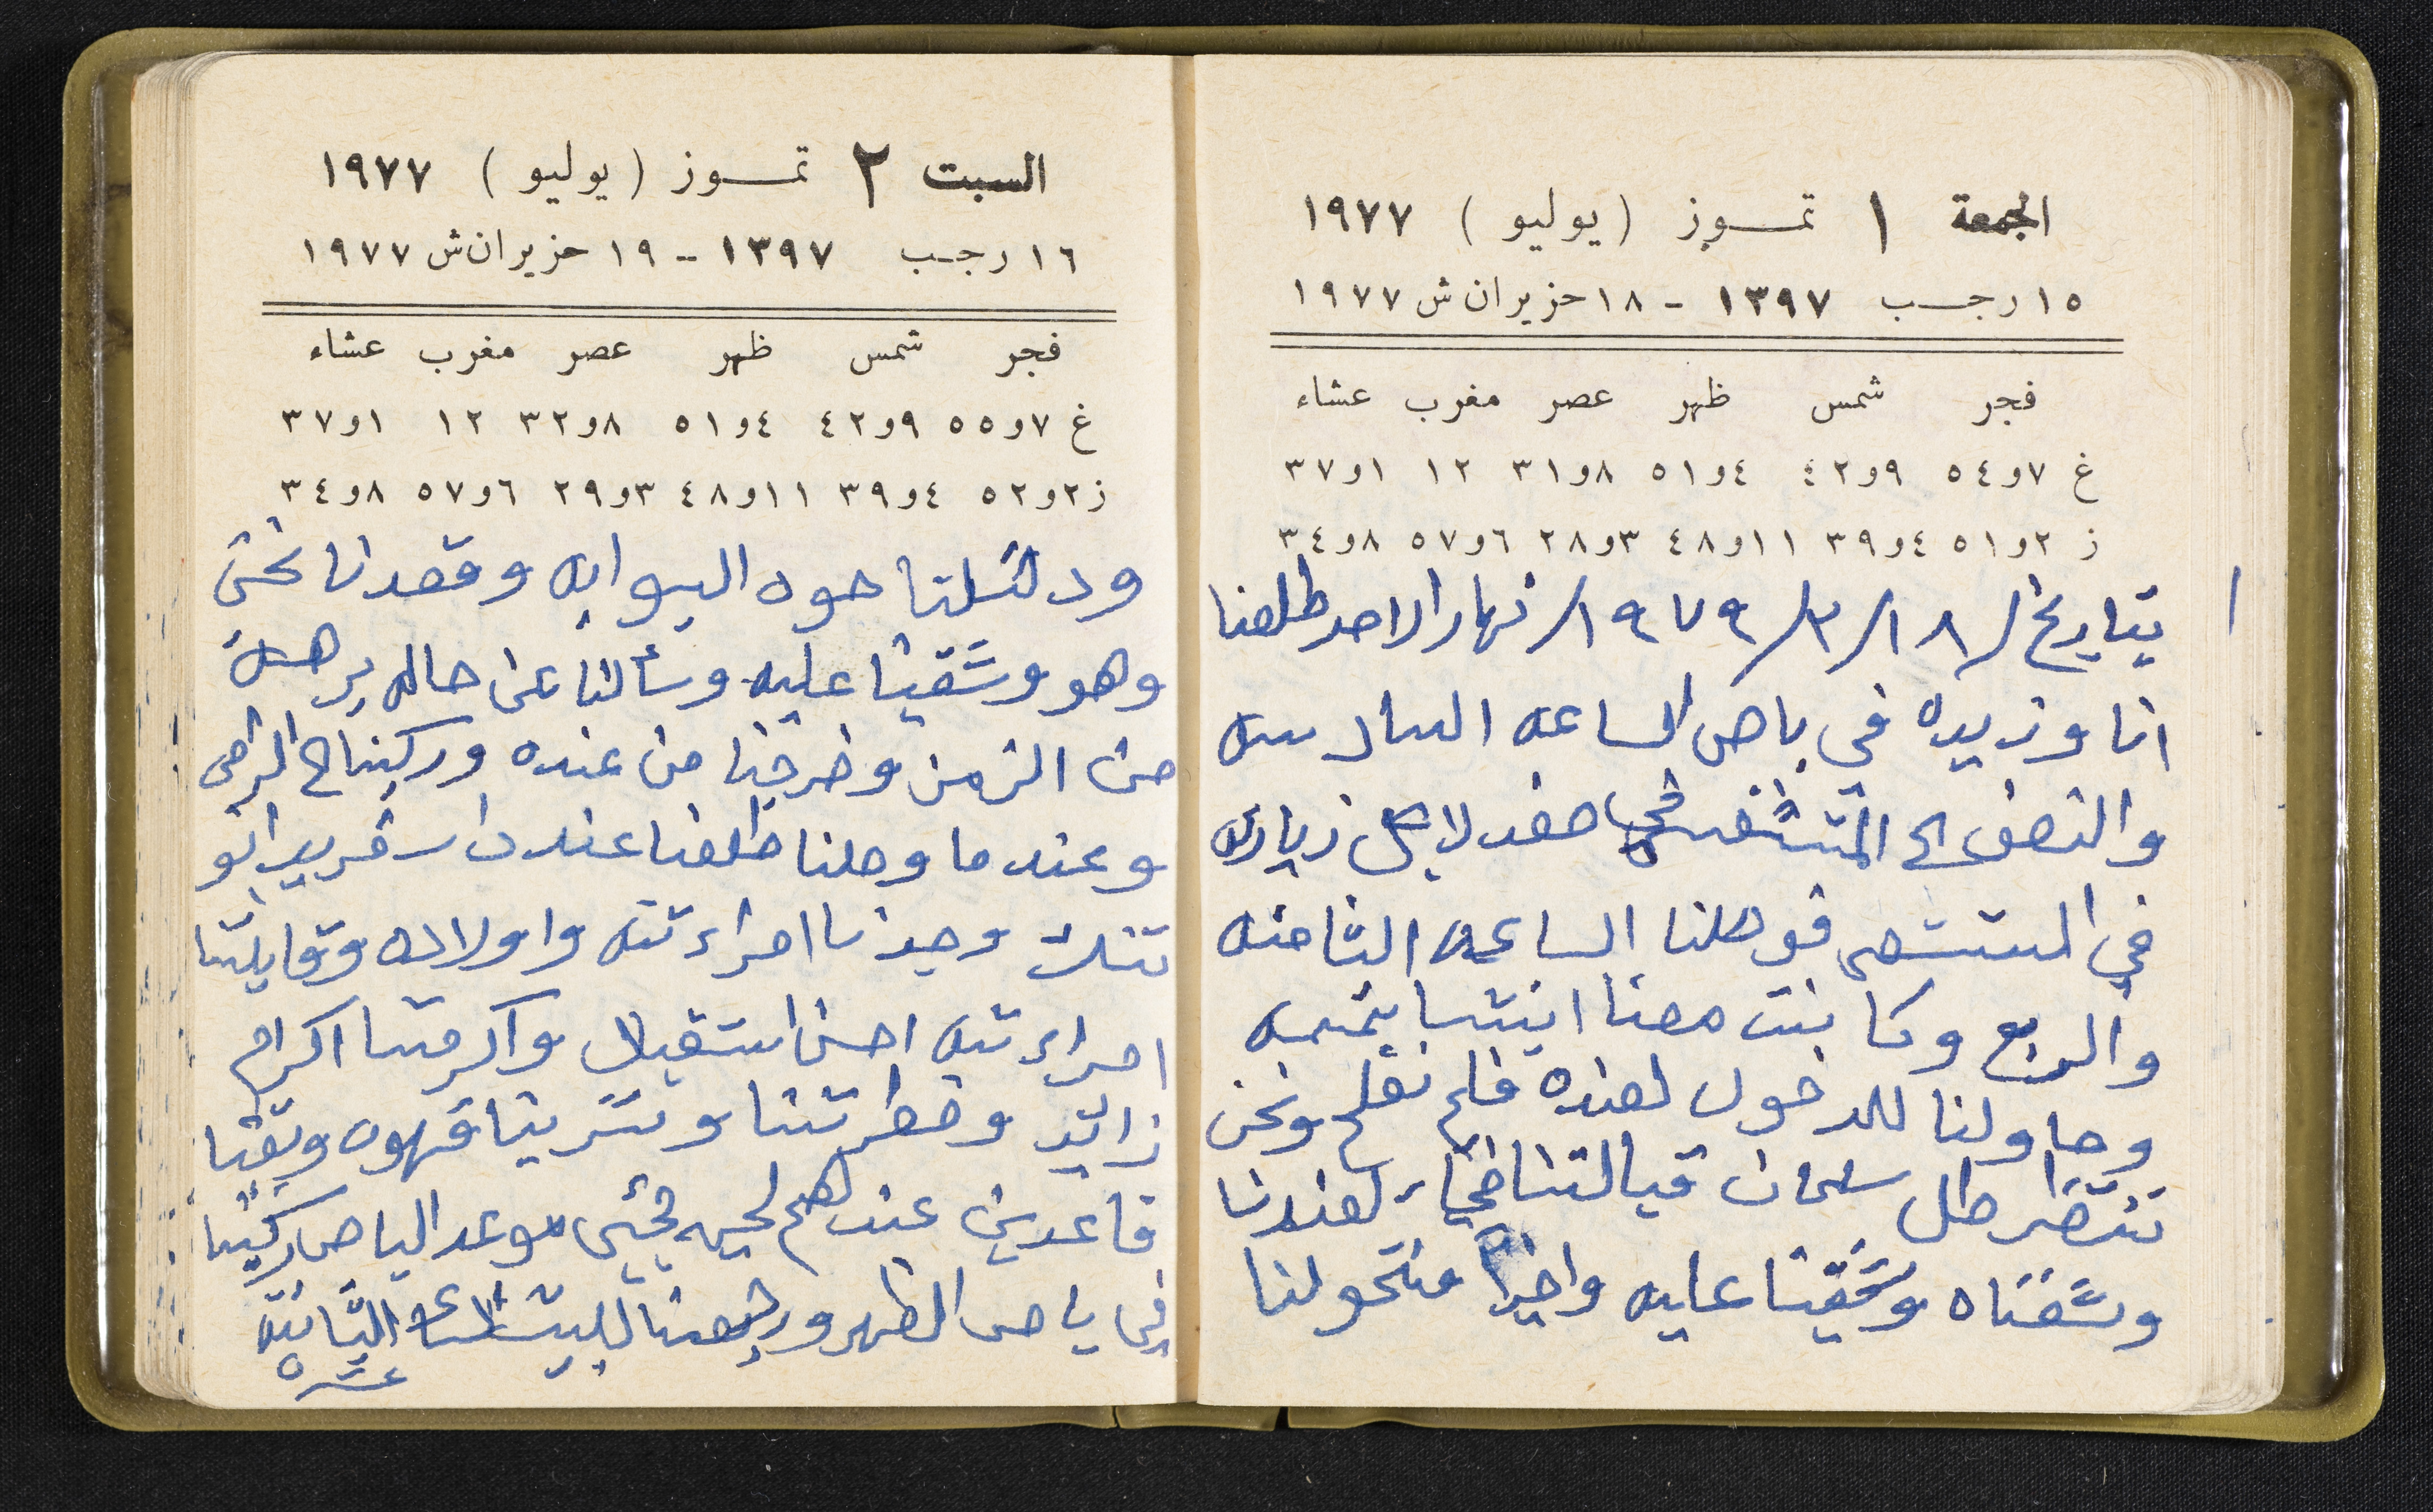 الجمعة ١ تمـوز (يوليو) ١٩٧٧
١٥ رجـب ١٣٩٧ - ١٨ حزيران ش ١٩٧٧
فجر شمس ظهر عصر مغرب عشاء
غ ٧و٥٤ ٩و٤٢ ٤و٥١ ٨و٣١ ١٢ ١و٣٧
ز ٢و٥١ ٤و٣٩ ١١و٤٨ ٣و٢٨ ٦و٥٧ ٨و٣٤
بتاريخ ١٨/٣/١٩٧٩/ نهار الاحد طلعنا
انا وزيده في باص الساعه السادسه
والنصف الى المتشفى صفد لاجل زيارة
في المستشفى فوصلنا الساعه الثامنه
والربع وكانت معنا ابنتنا نجمه
وحاولنا للدخول لعنده فلم نفلح ونحن
ننتضر طل سلمان قبالتنا فجاء لعندنا
وشفناه وشقينا عليه واخيرا منتحولنا
السبت ٢ تمـوز (يوليو) ١٩٧٧
١٦ رجـب ١٣٩٧ - ١٩ حزيران ش ١٩٧٧
فجر شمس ظهر عصر مغرب عشاء
غ ٧و٥٥ ٩و٤٢ ٤و٥١ ٨و٣٢ ١٢ ١و٣٧
ز ٢و٥٢ ٤و٣٩ ١١و٤٨ ٣و٢٩ ٦و٥٧ ٨و٣٤
ودخلتنا جوه البوابه وقعدنا نحن
وهو وشقينا عليه وسألنا عن حاله برهة
من الزمن وخرجنا من عنده وركبنا
وعندما وصلنا طلعنا عند دار فريد ابو
وجدنا امراءته واولاده وقابلتنا
امراءته احسن استقبال واكرمتنا اكرام
زائد وفطرتنا وشربنا قهوه وبقينا
قاعدين عندهم لحين مجئى موعد الباص ركبنا
في باص الظهر ورجعنا للبيت الساعه الثانيه
عشره